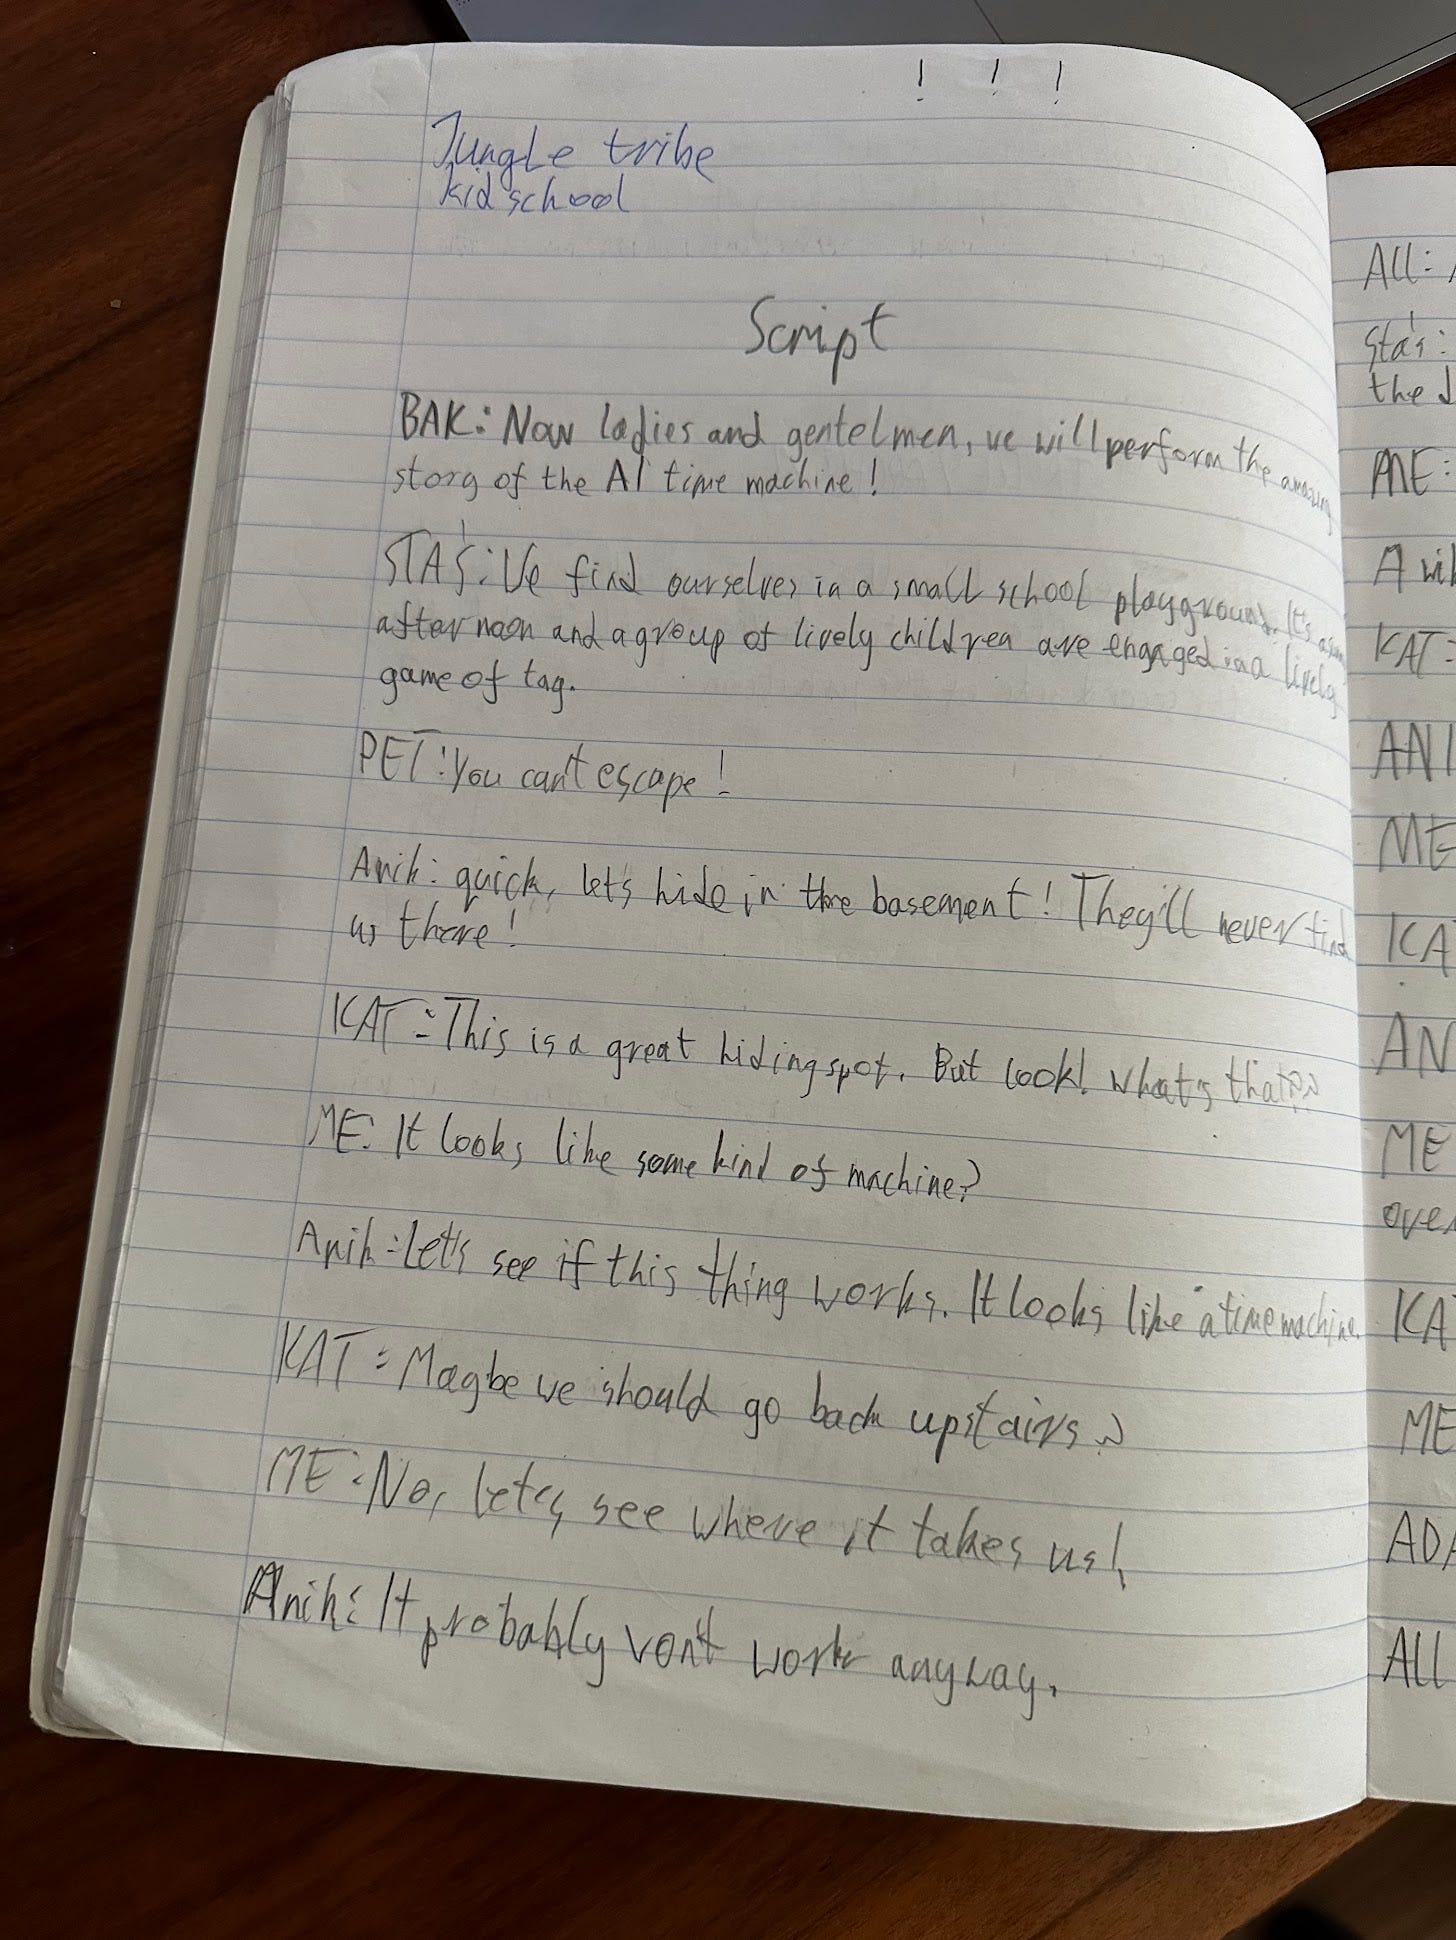 ! ! !
Jungle tribe
kid school
Script
BAK: Now ladies and gentelmen, we will perform the amazing
story of the AI time machine!
STAŚ: We find ourselves in a small school playground. It's
afternoon and a group of lively children are engaged in a lively
game of tag.
PET: You can't escape!
Anik: quick, let's hide in the basement! They'll never find
us there!
KAT: This is a great hiding spot. But look! What's that??
ME: It looks like some kind of machine?
Anik: Let's see if this thing works. It looks like a time machine.
KAT: Maybe we should go back upstairs?
ME: No, let's see where it takes us!
Anik: It probably won't work anyway.
ALL:
Staś:
the
A
KAT:
ANI
ME
KA
AN
ME
over
KA
ME
ADA
ALL